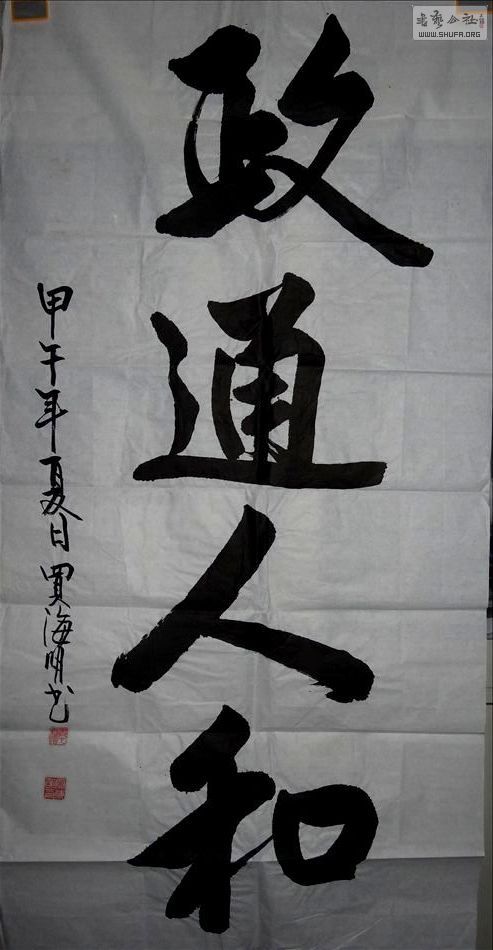 政通人和
甲午年夏日贾海明书
书艺公社
WWW.SHUFA.ORG